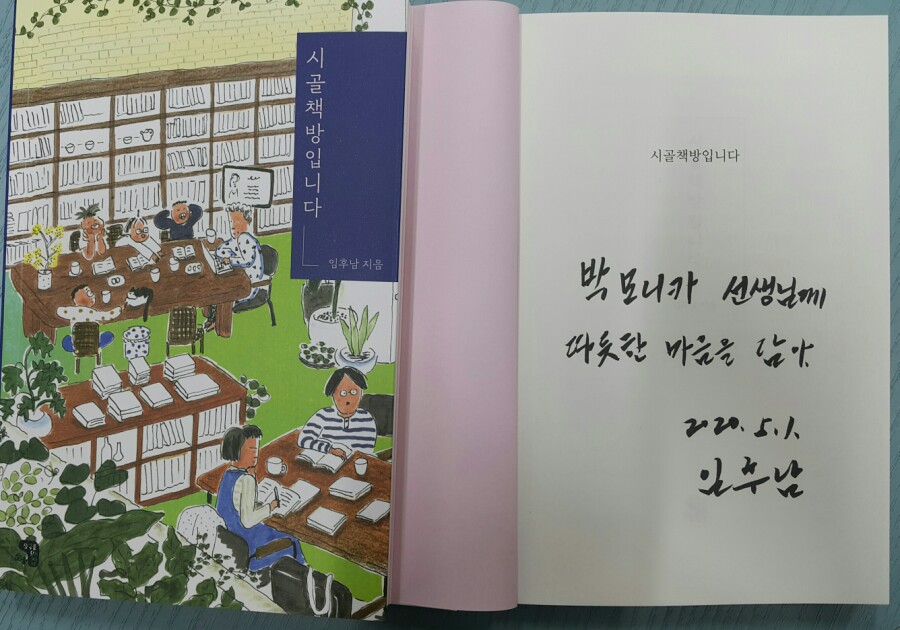 시골책방입니다
임후남 지음
시골책방입니다
박 모니카 선생님께
따뜻한 마음을 담아.
2020. 5. 1.
임후남